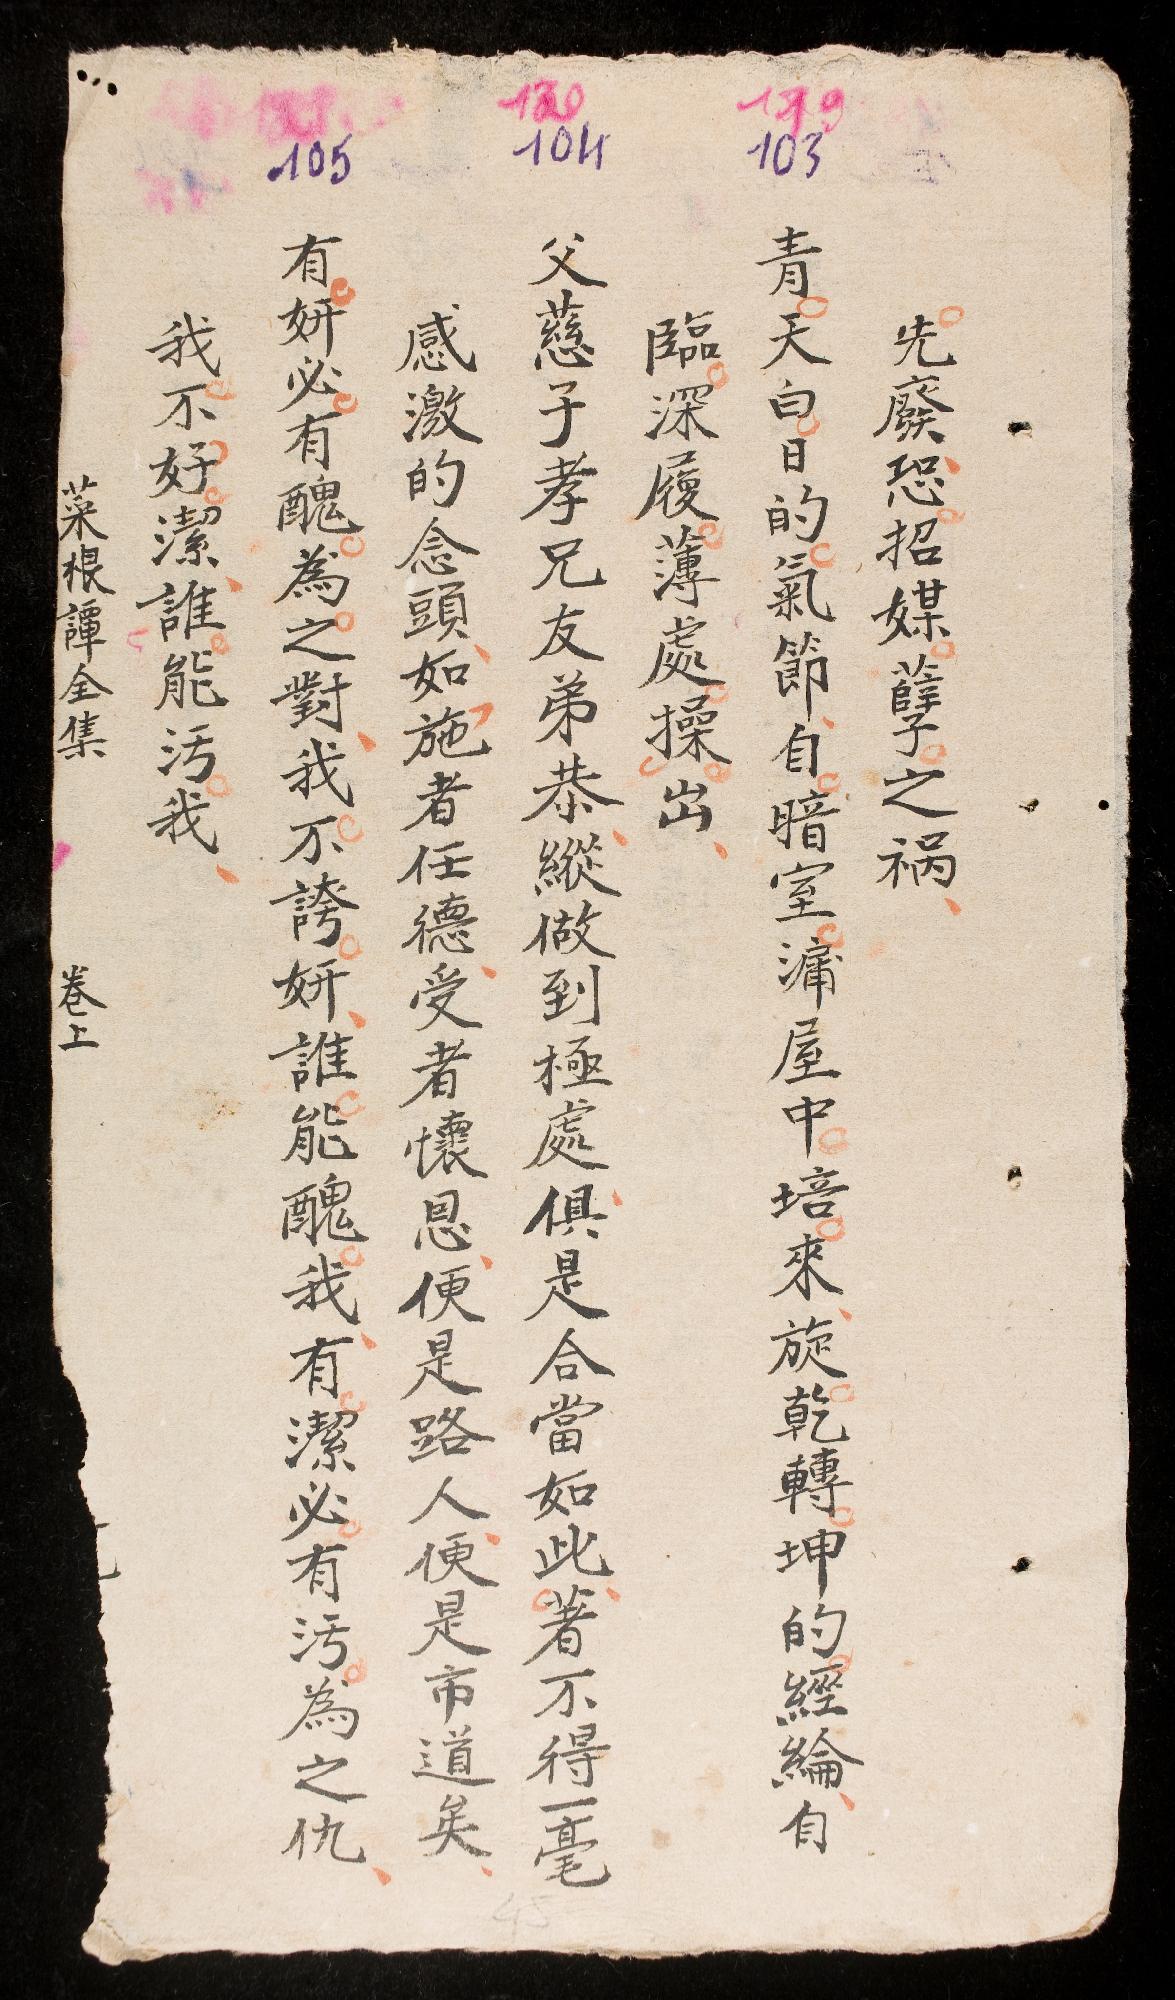 129
103
130
104
105
先廢恐招媒孽之禍
青天白日的氣節自暗室漏屋中培來旋乾轉坤的經綸自
臨深履薄處操出
父慈子孝兄友弟恭縱做到極處俱是合當如此著不得一毫
感激的念頭如施者任德受者懷恩便是路人便是市道矣
有妍必有醜為之對我不誇妍誰能醜我有潔必有污為之仇
我不好潔誰能污我
菜根譚全集 卷上
45